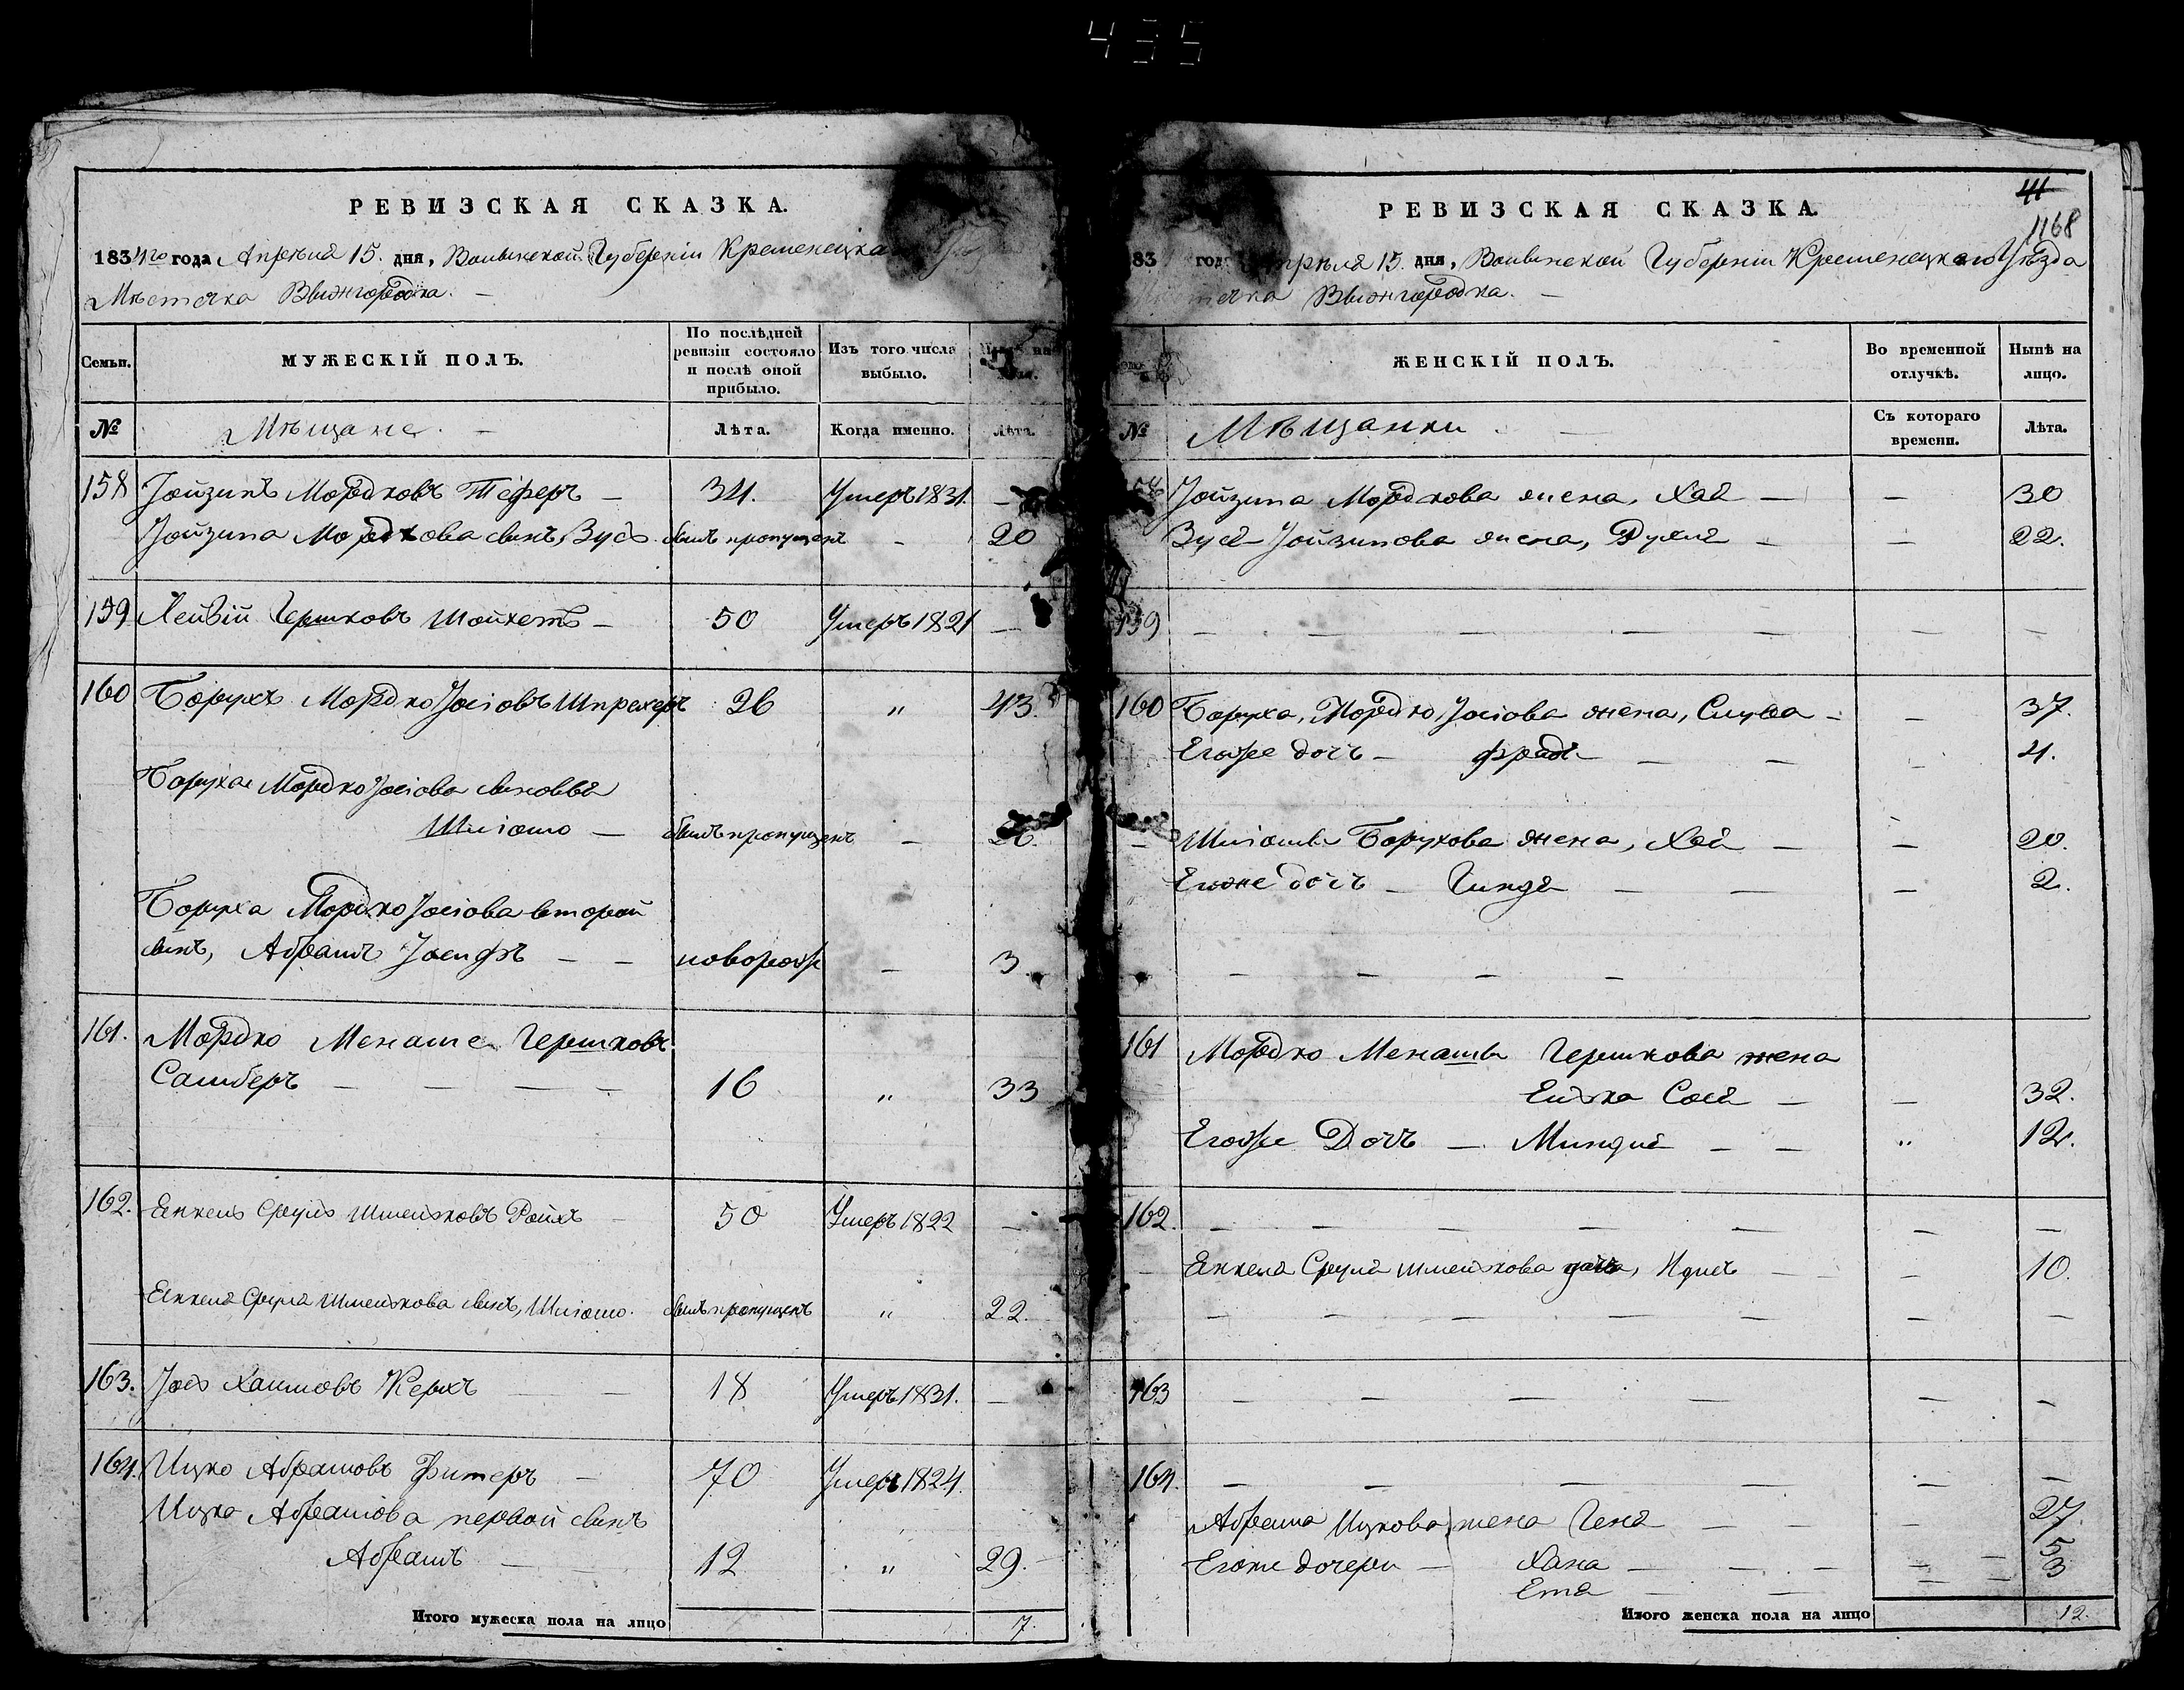 435
РЕВИЗСКАЯ СКАЗКА.
1834го года Апрѣля 15. дня, Волынской Губерніи Кременецка
Мѣстечка Вышгородка. —
Семьи.
МУЖЕСКІЙ ПОЛЪ.
По послѣдней ревизіи состояло и послѣ оной прибыло.
Изъ того числа выбыло.
№ Мѣщане. — Лѣта. Когда именно. Лѣта.
158 Іойзипъ Мордковъ Теферъ — 34. Умеръ 1831. —
Іойзипа Мордкова сынъ, Зусь былъ пропущенъ — 20
159 Лейвій Гершковъ Шойхетъ — 50 Умеръ 1821 —
160 Борухъ Мордко Іосіовъ Шпрехеръ 26 " 43.
Боруха Мордко Іосіова сыновья
Шліомо — былъ пропущенъ — 26.
Боруха Мордко Іосіова второй
сынъ, Абрамъ Іосифъ — — новорож — 3
161. Мордко Менаше Гершковъ
Самберъ — — — — 16 " 33
162. Енкель Сруль Шмельковъ Ройхъ — 50 Умеръ 1822 —
Енкеля Сруля Шмелькова сынъ, Шліомо. былъ пропущенъ " 22.
163. Іось Хаимовъ Керхъ — — 18 Умеръ 1831. —
164. Ицко Абрамовъ Фитеръ — 70 Умеръ 1824.
Ицка Абрамова первой сынъ
Абрамъ — — 12 " 29.
Итого мужеска пола на лицо 7.
41
1168
РЕВИЗСКАЯ СКАЗКА.
83 года Апрѣля 15. дня, Волынской Губерніи Кременецкаго Уѣзда
Мѣстечка Вышгородка. —
ЖЕНСКІЙ ПОЛЪ.
Во временной отлучкѣ.
Нынѣ на лицо.
№ Мѣщанки. — Съ котораго времени. Лѣта.
158 Іойзипа Мордкова жена, Хая — — 30
Зуся Іойзипова жена, Рухля — — 22.
159 — — — — — — —
160 Боруха, Мордко Іосіова жена, Слува — — 37.
Егоже дочь — Фрада — — — 4.
— Шліомы Борухова жена, Хая — — 20.
Егоже дочь — Гинда — — — 2.
— — — —
161 Мордко Менаши Гершкова жена
Елька Сося — — 32.
Егоже Дочь — Миндля — — " 12.
162. — — — — — — —
— Енкеля Сруля Шмелькова дочь, Идесъ — — 10.
— — — — — — —
163 — — — — — —
164. — — — — — — —
Абрама Ицкова жена Геня — — — 27.
Егоже дочери — Хана — — — 5
Етя — — — 3
Итого женска пола на лицо 12.